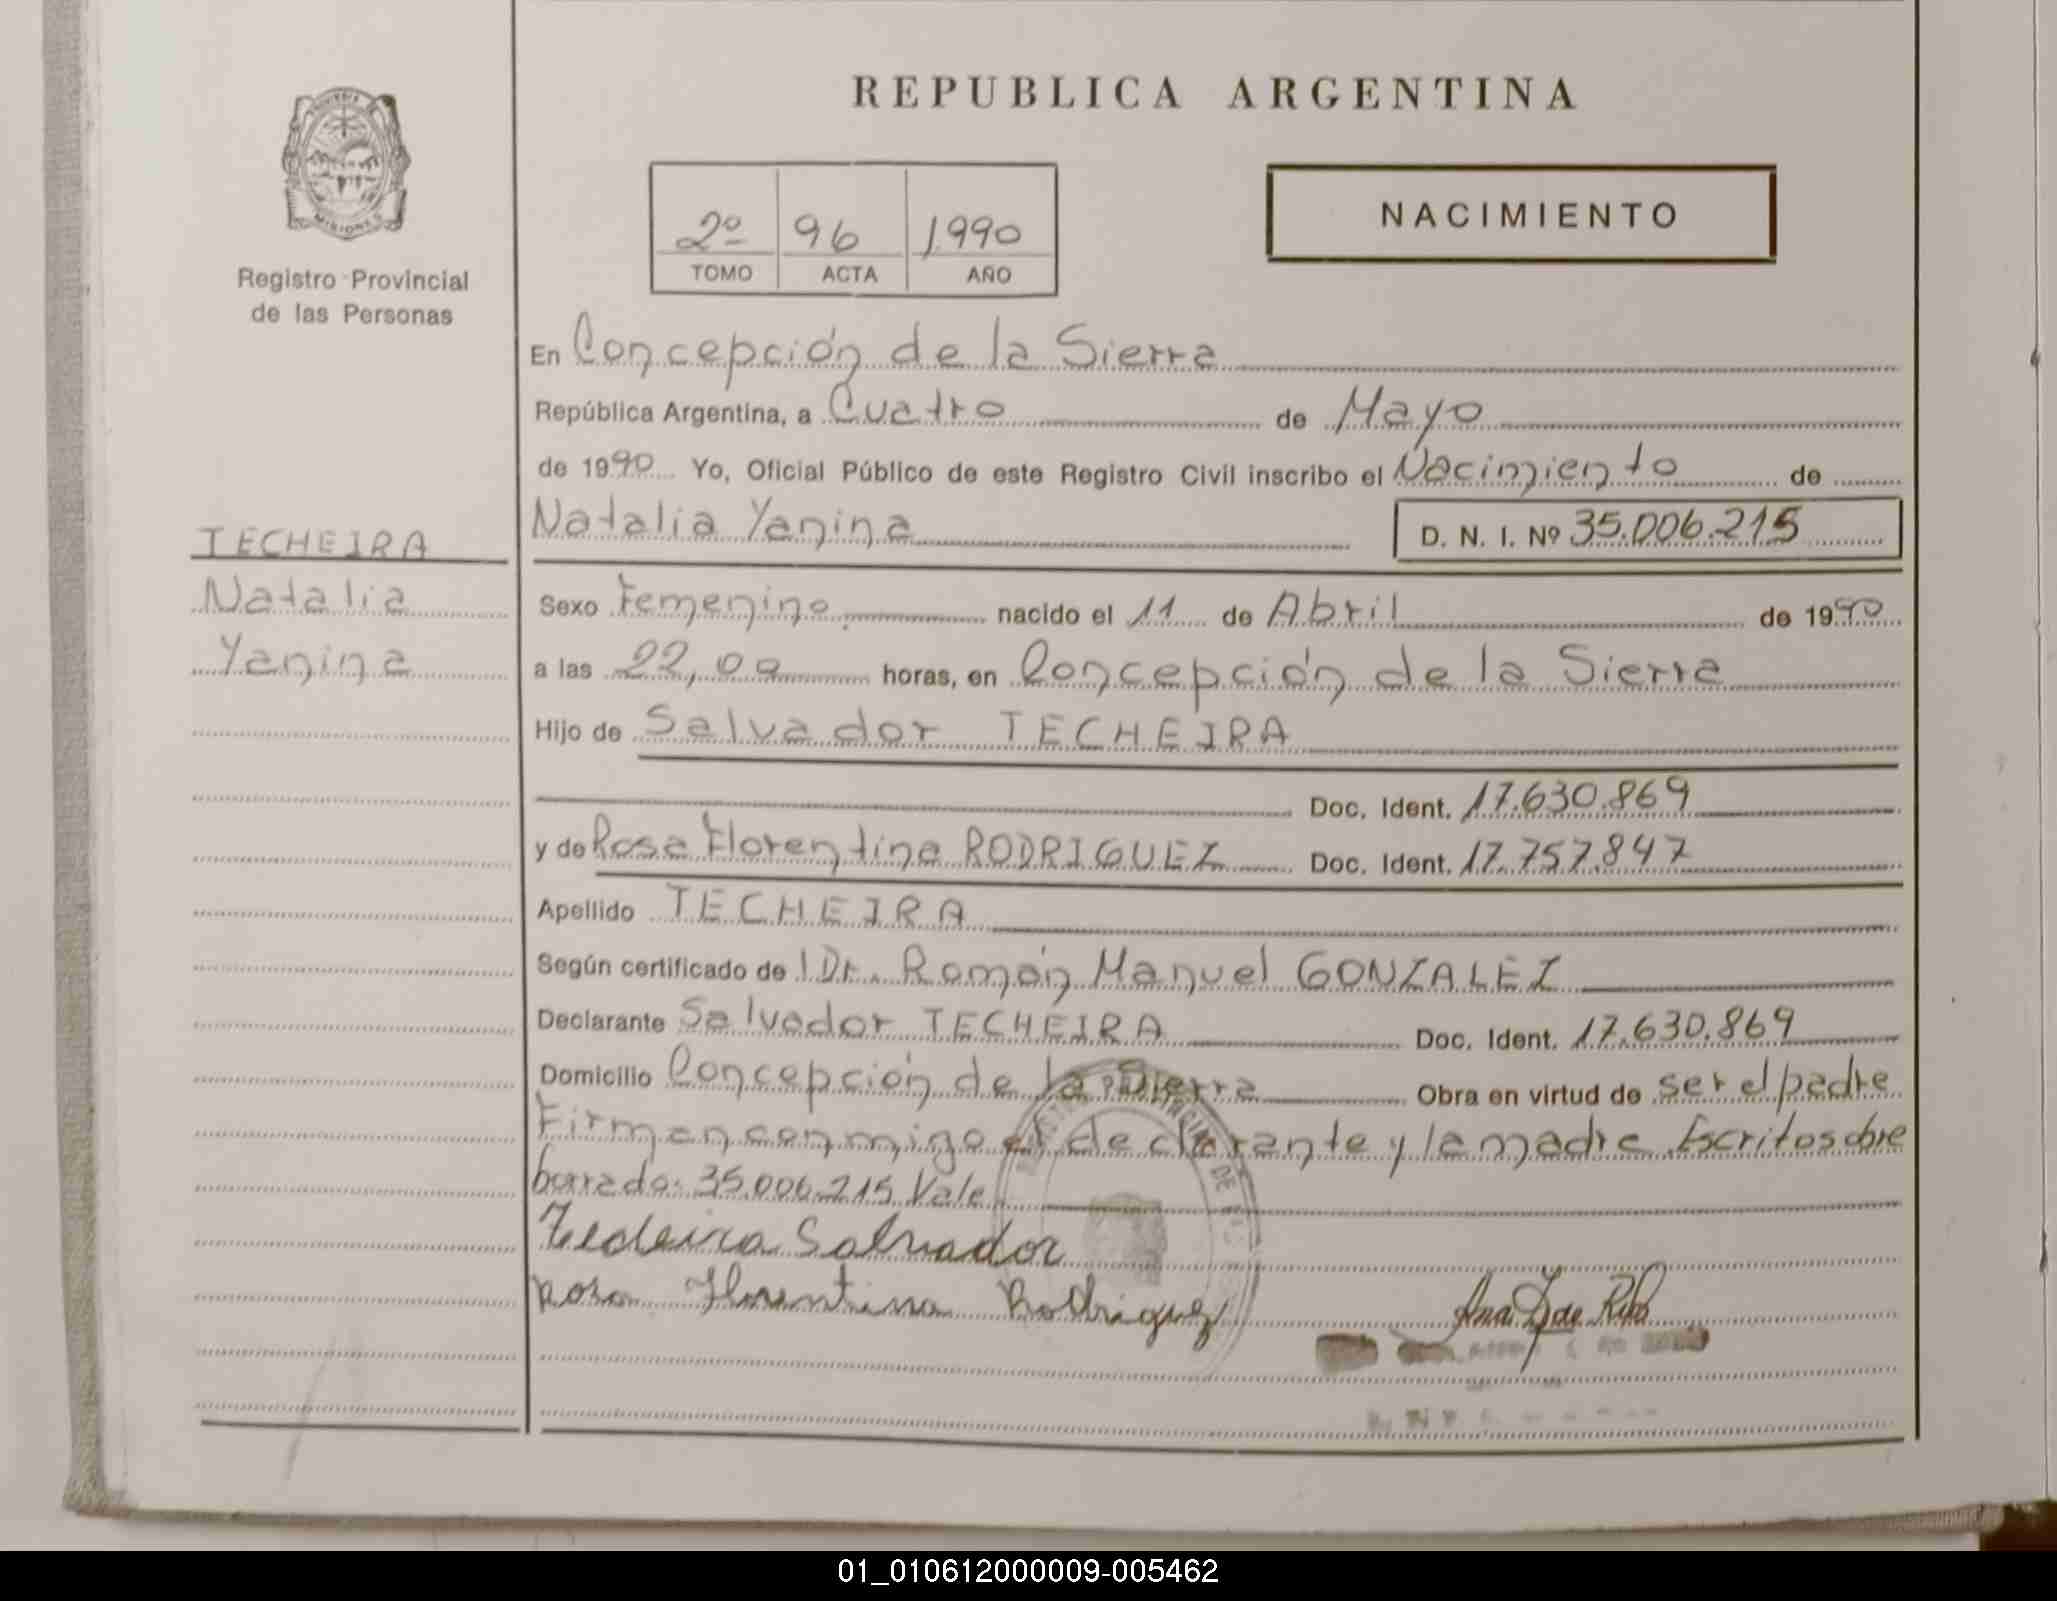 REPUBLICA ARGENTINA
PROVINCIA
MISIONES
Registro Provincial
de las Personas
NACIMIENTO
2º 96 1990
TOMO ACTA AÑO
En Concepción de la Sierra
República Argentina, a Cuatro de Mayo
de 1990 Yo, Oficial Público de este Registro Civil inscribo el Nacimiento de
Natalia Yanina D. N. I. Nº 35.006.215
TECHEIRA
Natalia
Yanina
Sexo Femenino nacido el 11 de Abril de 1990
a las 22,00 horas, en Concepción de la Sierra
Hijo de Salvador TECHEIRA
Doc. Ident. 17.630.869
y de Rosa Florentina RODRIGUEZ Doc. Ident. 17.757.847
Apellido TECHEIRA
Según certificado de l Dr. Román Manuel GONZALEZ
Declarante Salvador TECHEIRA Doc. Ident. 17.630.869
Domicilio Concepción de la Sierra Obra en virtud de ser el padre
Firman conmigo el declarante y la madre Escrito sobre
borrado: 35.006.215 Vale
Techeira Salvador
Rosa Florentina Rodriguez
Ana de
01_010612000009-005462